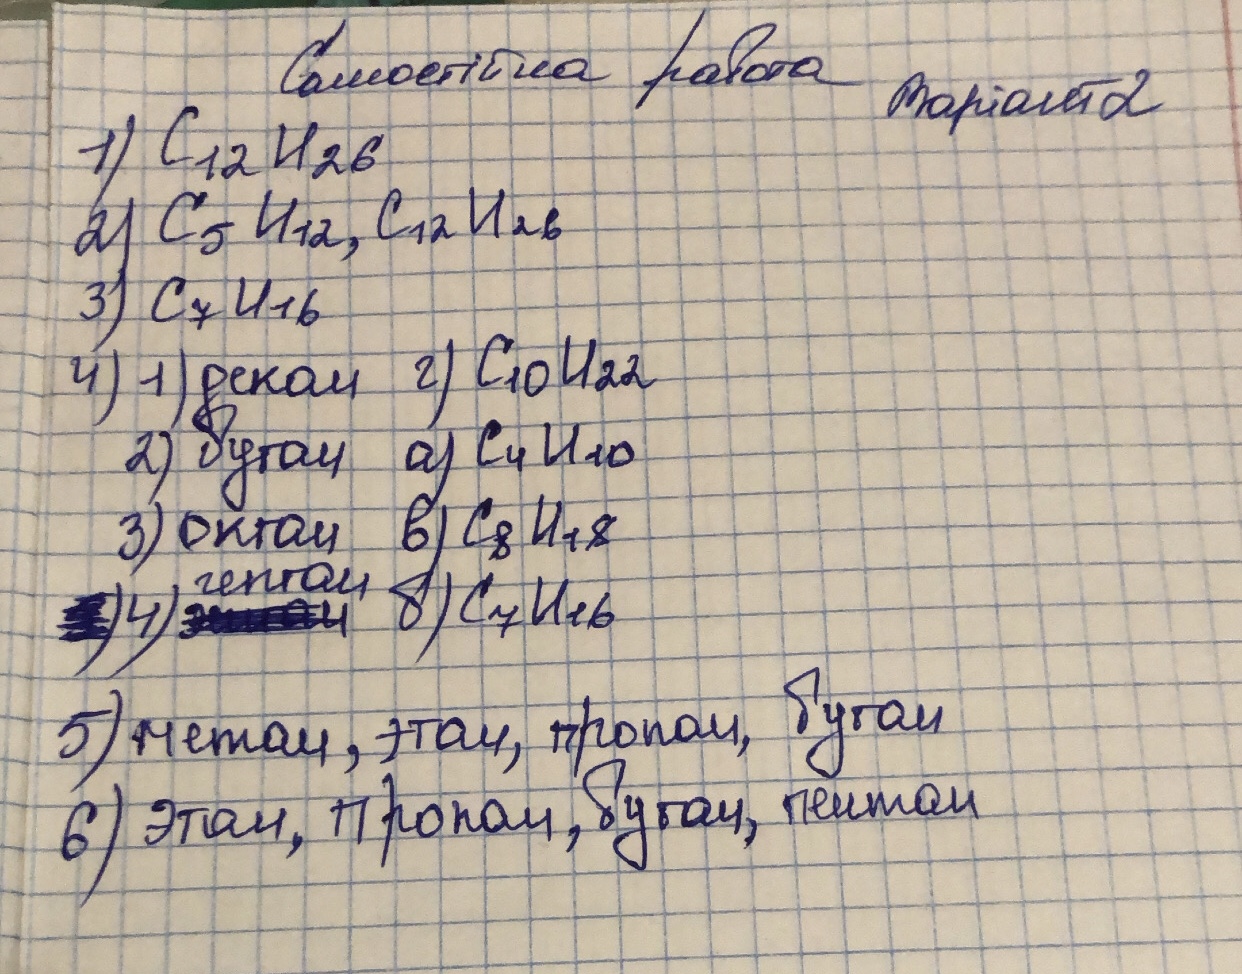 Самостійна работа
Варіант 2
1) C12H26
2) C5H12, C12H26
3) C7H16
4) 1) декан г) C10H22
2) бутан а) C4H10
3) октан в) C8H18
гептан
4) б) C7H16
5) метан, этан, пропан, бутан
6) Этан, пропан, бутан, пентан